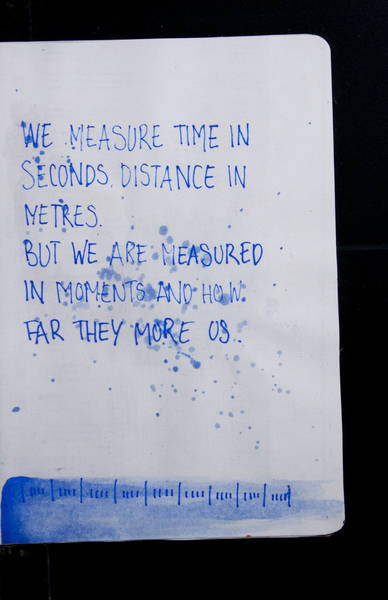 WE MEASURE TIME IN
SECONDS. DISTANCE IN
METRES.
BUT WE ARE MEASURED
IN MOMENTS AND HOW
FAR THEY MORE US.